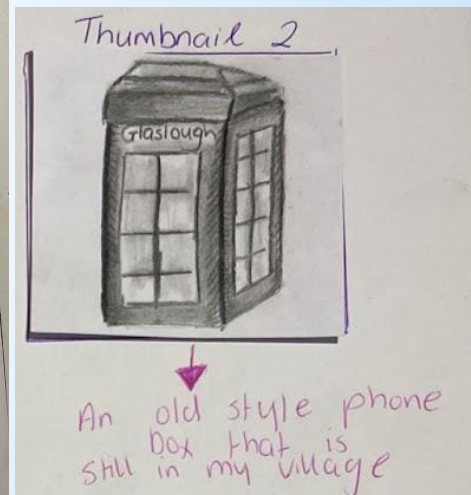 Thumbnail 2
Glaslough
An old style phone
box that is
still in my village